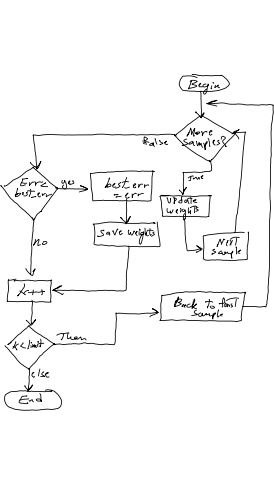 Begin
More
samples?
False
True
Update
weights
Next
sample
Err<
best_err
yes
best_err
= err
save weights
no
k++
Back to first
sample
k<limit
Then
else
End